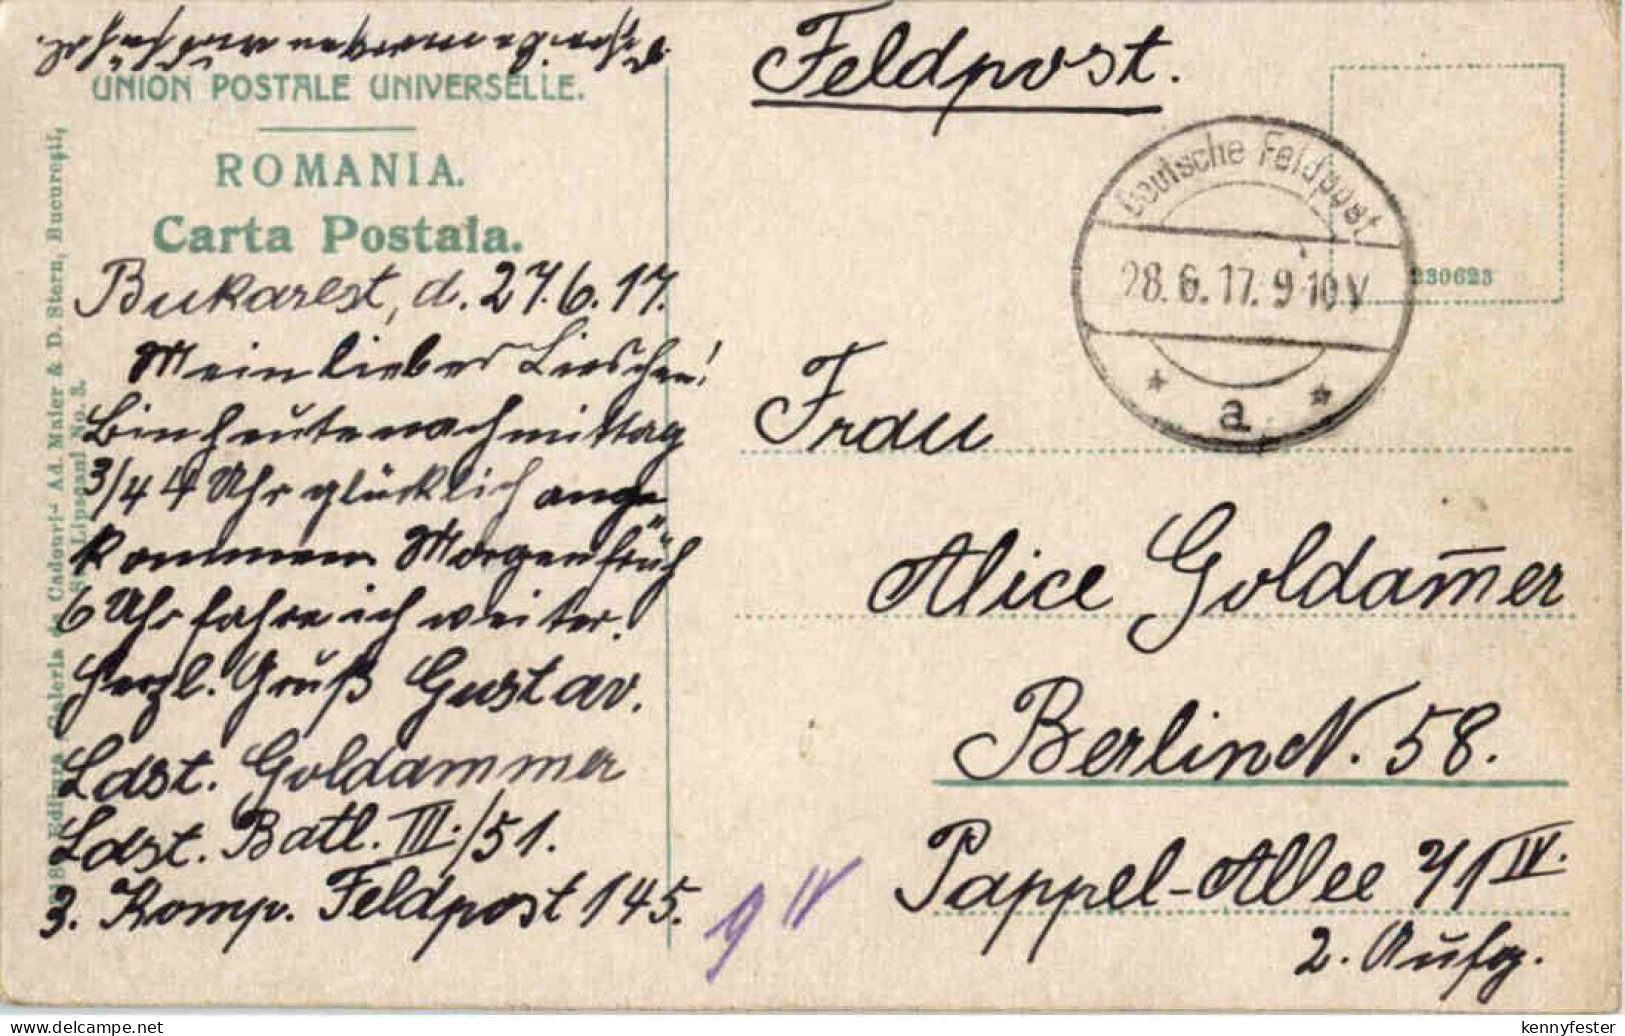 UNION POSTALE UNIVERSELLE.
ROMANIA.
Carta Postala.
Bukarest, d. 27.6.17.
Mein liebes Lieschen!
Bin heute nachmittag
3/4 4 Uhr glücklich ange
kommen. Morgen früh
6 Uhr fahre ich weiter.
Herzl. Gruß Gustav.
Ldst. Goldammer
Ldst. Batl. III./51.
3. Komp. Feldpost 145.
Ad. Maier & D. Stern, Bucureşti,
Feldpost.
Deutsche Feldpost
28.6.17. 9-10 V
a
230623
Frau
Alice Goldam̅er
Berlin N. 58.
Pappel-Allee 71 IV.
2. Aufg.
9 IV
kennyfester